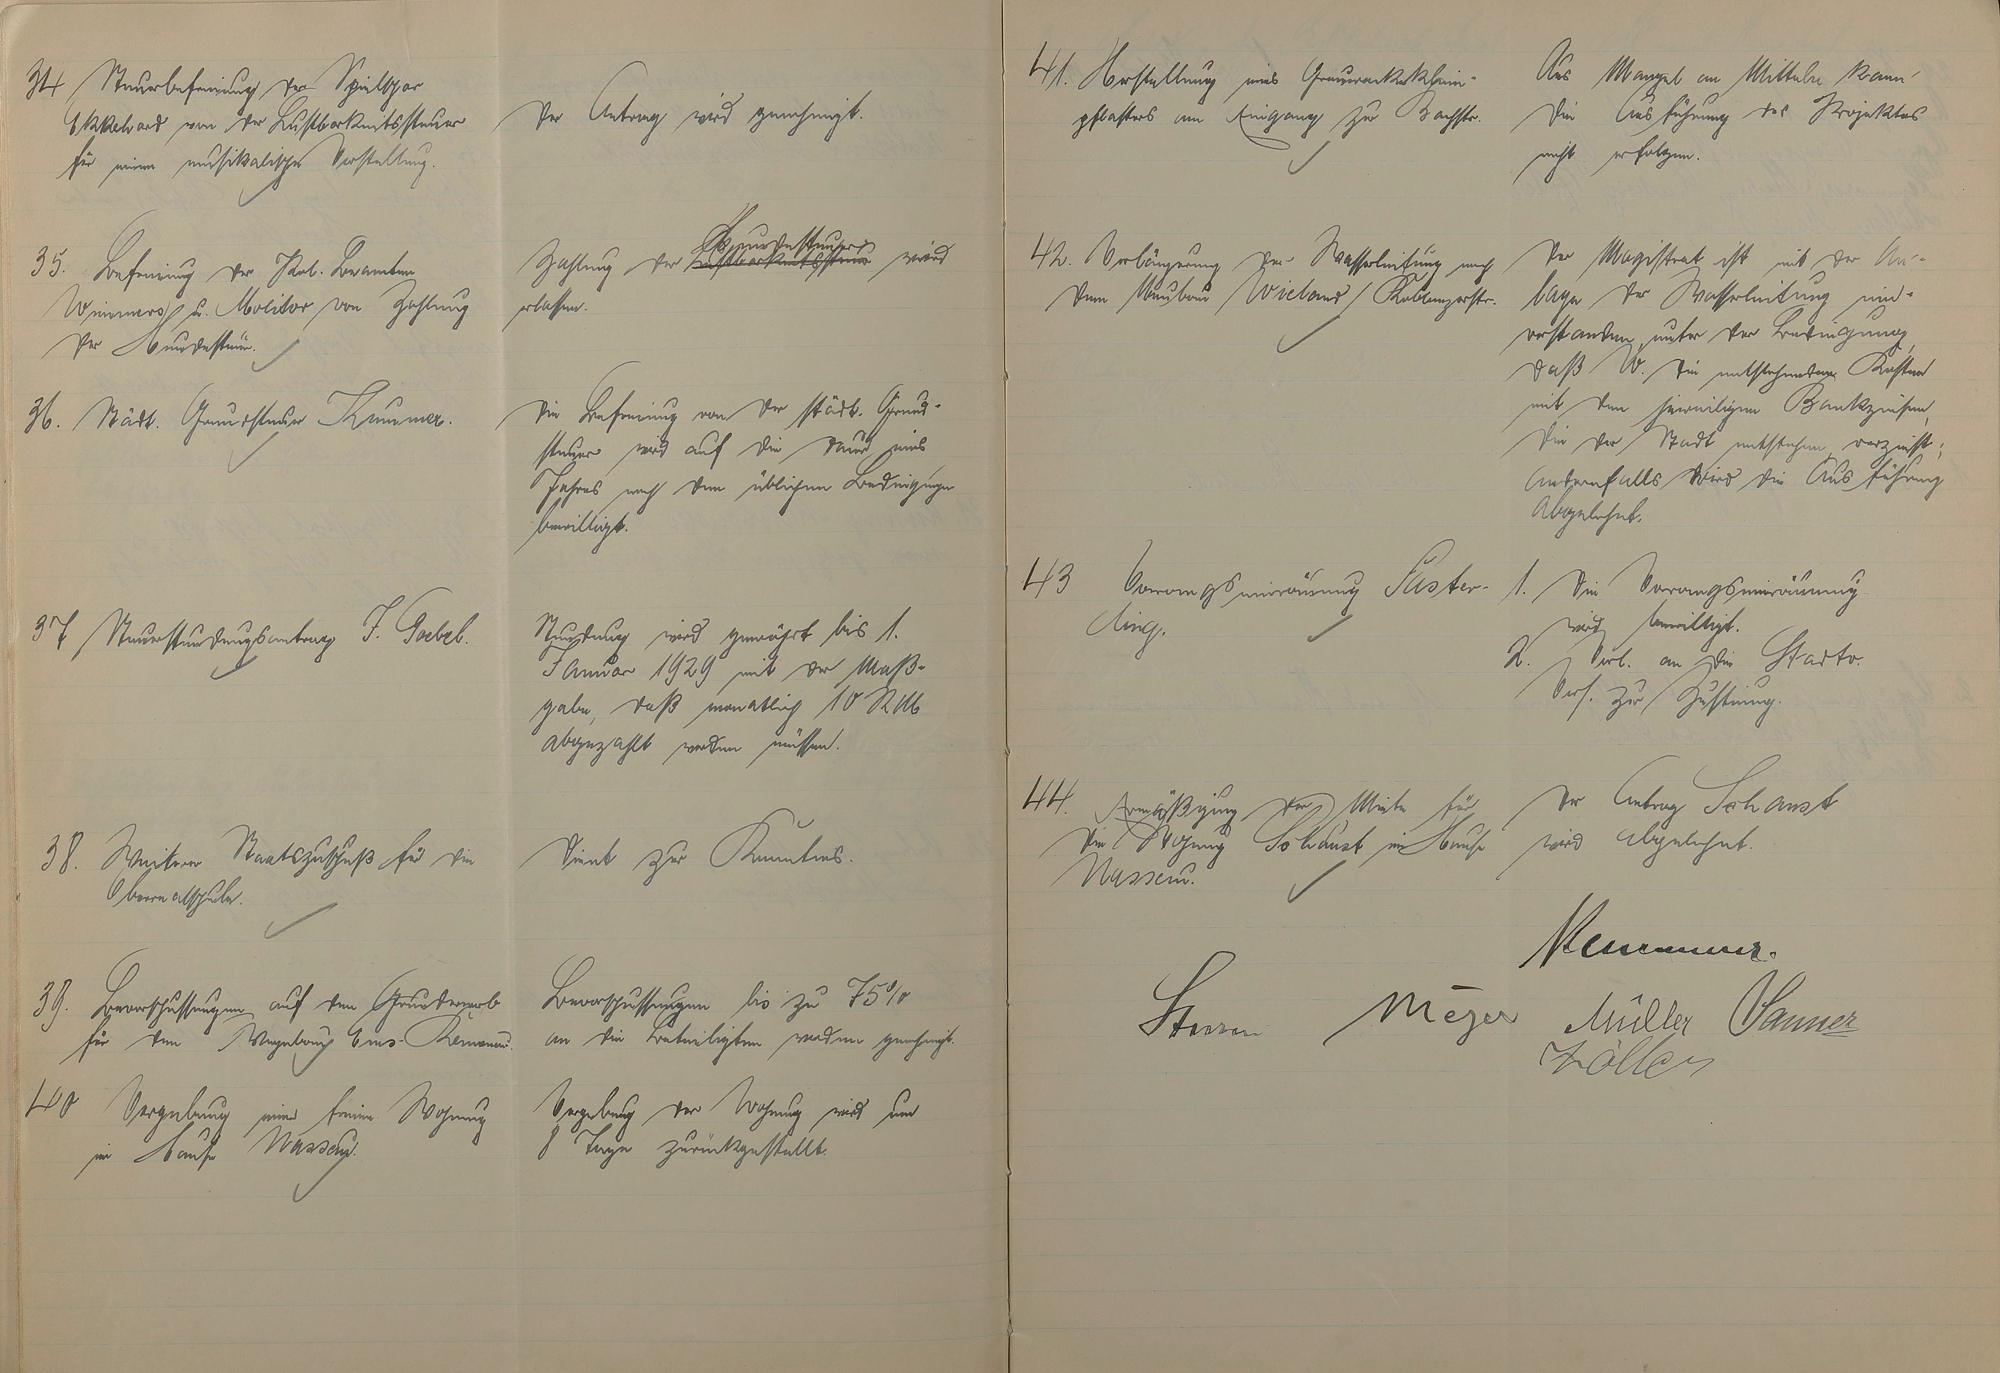 34 Steuerbefreiung der Spielschar
Ekkehard von der Lustbarkeitssteuer
für eine musikalische Vorstellung.
Der Antrag wird genehmigt.
35. Befreiung der Pol. Beamten
Wimmers u. Molitor von Zahlung
der Hundesteuer.
Zahlung der Lustbarkeitssteuer Hundesteuer wird
erlassen.
36. Städt. Grundsteuer Kummer.
Die Befreiung von der städt. Grund-
steuer wird auf die Dauer eines
Jahres nach den üblichen Bedingungen
bewilligt.
37 Steuerstundungsantrag J. Goebel.
Stundung wird gewährt bis 1.
Januar 1929 mit der Maß-
gabe, daß monatlich 10 RM
abgezahlt werden müssen.
38. Weiterer Staatszuschuß für die
Oberrealschule.
Dient zur Kenntnis.
39. Bevorschussungen auf den Grunderwerb
für den Wegebau Ems-Kemenau.
Bevorschussungen bis zu 75%
an die Beteiligten werden genehmigt.
40 Vergebung einer freien Wohnung
im Hause Nassau.
Vergebung der Wohnung wird um
8 Tage zurückgestellt.
41. Herstellung eines Grauwackekleín-
pflasters am Eingang zur Bachstr.
Aus Mangel an Mitteln kann
die Ausführung des Projektes
nicht erfolgen.
42. Verlängerung der Wasserleitung nach
dem Neubau Wieland / Koblenzerstr.
Der Magistrat ist mit der An-
lage der Wasserleitung ein-
verstanden, unter der Bedingung,
daß W. die entstehenden Kosten
mit den jeweiligen Bankzinsen,
die der Stadt entstehen, verzinst;
andernfalls wird die Ausführung
abgelehnt.
43 Vorrangseinräumung Suster-
ding.
1. Die Vorrangseinräumung
wird bewilligt.
2. Vorl. an die Stadtv.
Vers. zur Zustimmung.
44. Ermäßigung der Miete für
die Wohnung Schaust im Hause
Nassau.
Der Antrag Schaust
wird abgelehnt.
Meyer Müller Sanner